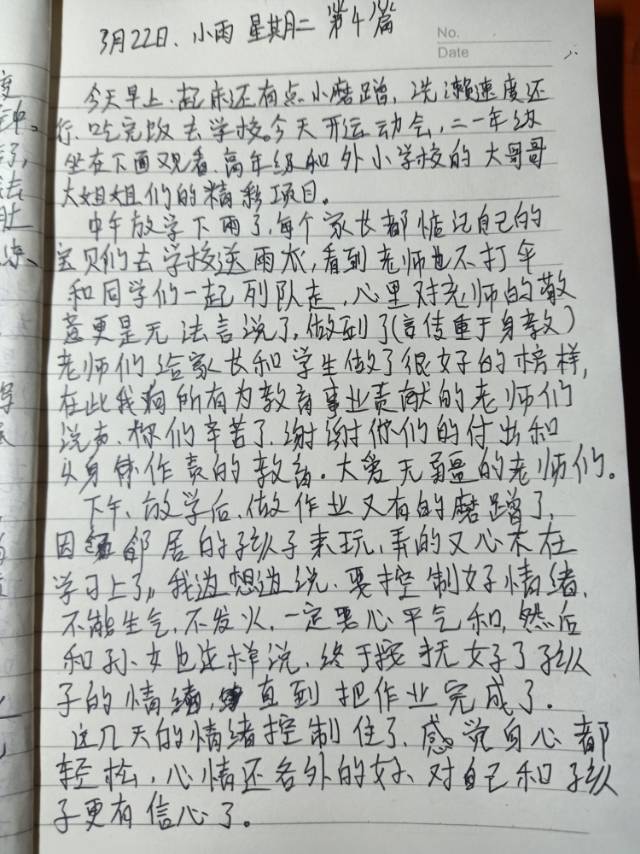 3月22日、小雨 星期二 第4篇
No.
Date
今天早上、起床还有点小磨蹭，洗濑速度还
行、吃完饭去学校。今天开运动会，二一年级
坐在下面观看、高年级和外小学校的大哥哥
大姐姐们的精彩项目。
中午放学下雨了，每个家长都惦记自己的
宝贝们去学校送雨衣，看到老师也不打伞
和同学们一起列队走，心里对老师的敬
意更是无法言说了，做到了(言传重于身教)
老师们给家长和学生做了很好的榜样，
在此我向所有为教育事业贡献的老师们
说声、你们辛苦了、谢谢你们的付出和
以身体作责的教育．大爱无疆的老师们。
下午、放学后、做作业又有的磨蹭了，
因 邻居的孩子来玩，弄的又心不在
学习上了，我边想边说、要控制好情绪、
不能生气，不发火，一定要心平气和，然后
和孙女也这样说，终于按抚好了孩
子的情绪，直到把作业完成了．
这几天的情绪控制住了、感觉身心都
轻松，心情还各外的好、对自己和孩
子更有信心了。